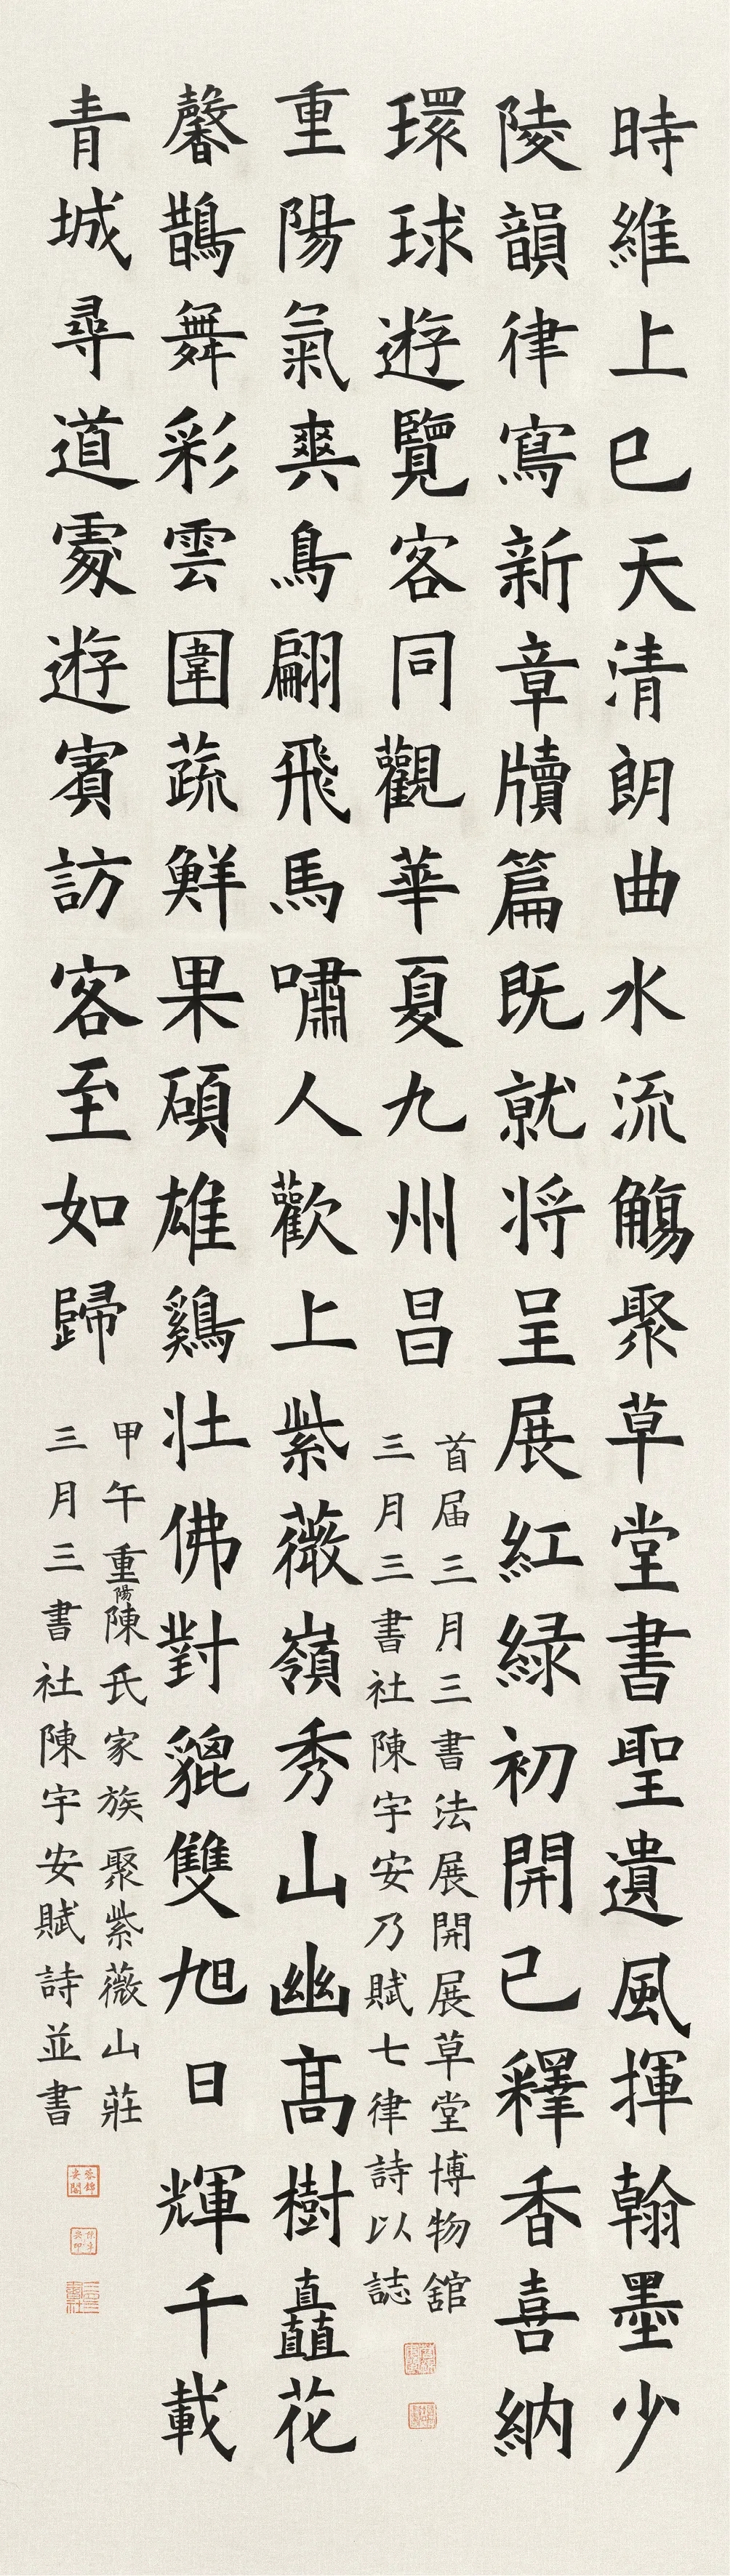 時維上巳天清朗曲水流觴聚草堂書聖遺風揮翰墨少
陵韻律寫新章牘篇既就将呈展紅緑初開已釋香喜納
環球遊覽客同觀華夏九州昌
首届三月三書法展開展草堂博物舘
三月三書社陳宇安乃賦七律詩以誌
重陽氣爽鳥翩飛馬嘯人歡上紫薇嶺秀山幽髙樹矗花
馨鵲舞彩雲圍蔬鮮果碩雄鷄壮佛對貔雙旭日輝千載
青城尋道處遊賓訪客至如歸
甲午重陽陳氏家族聚紫薇山莊
三月三書社陳宇安賦詩並書